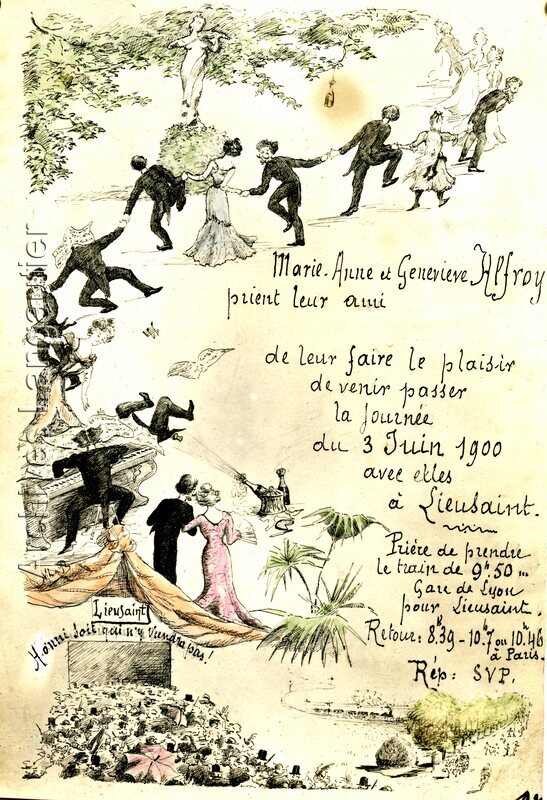 Marie-Anne et Geneviève Alfroy
prient leur ami
de leur faire le plaisir
de venir passer
la Journée
du 3 Juin 1900
avec elles
à Lieusaint.
Prière de prendre
le train de 9h50 m
Gare de Lyon
pour Lieusaint.
Retour: 8h39 - 10h7 ou 10h46
à Paris.
Rép: SVP.
Lieusaint
Honni soit qui n'y viendra pas!